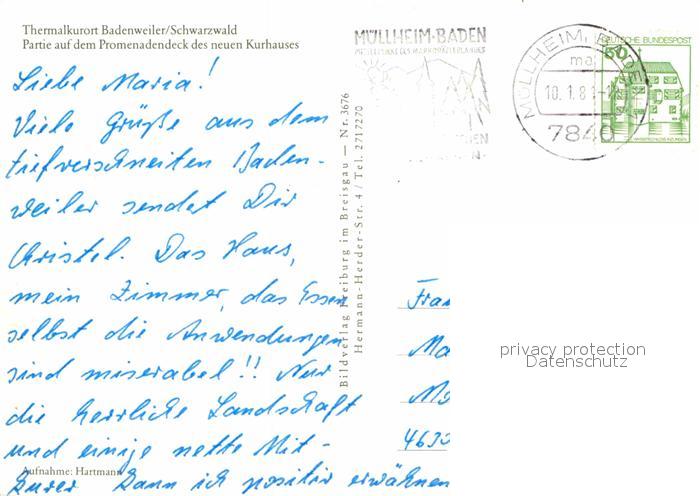 Thermalkurort Badenweiler/Schwarzwald
Partie auf dem Promenadendeck des neuen Kurhauses
Liebe Maria!
Viele Grüße aus dem
tiefverschneiten Baden-
weiler sendet Dir
Christel. Das Haus,
mein Zimmer, das Essen
selbst die Anwendungen
sind miserabel!! Nur
die herrliche Landschaft
und einige nette Mit-
Aufnahme: Hartmann
kurer kann ich positiv erwähnen
Bildverlag Freiburg im Breisgau — Nr. 3676
Hermann-Herder-Str. 4 / Tel. 2717270
MÜLLHEIM·BADEN
MÜLLHEIM, BADEN
ma
10.1.8
7840
DEUTSCHE BUNDESPOST
50
Frau
Ma
Mo
4630
privacy protection
Datenschutz